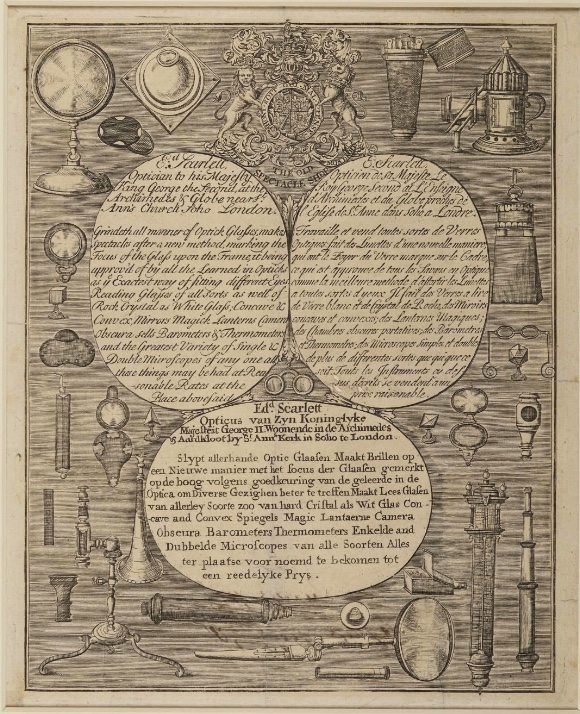 THE OLD
SPECTACLE SHOP
E.d Scarlett
Optician to his Majesty
King George the Second, at the
Archimedes & Globe near St.
Ann's Church Soho London.
Grindeth all manner of Optick Glasses, makes
Spectacles after a new method, marking the
Focus of the Glass upon the Frame, it being
approv'd of by all the Learned in Opticks
as ye Exactest way of fitting different Eyes.
Reading Glasses of all Sorts as well of
Rock Crystal as White Glass, Concave &
Convex Mirrors Magick Lanterns Camera
Obscura. Sells Barometers & Thermometers
and the Greatest Variety of Single &
Double Microscopes of any one all
these things may be had at Rea-
sonable Rates at the
Place abovesaid
E. Scarlett,
Opticien de sa Majeste Le
Roy George Second à L'Enseigne
d'Archimedes et du Globe proches de
l'Eglise de St. Anne dans Soho a Londre.
Travaille et vend toutes sortes de Verres
Optiques fait des Lunettes d'une nouvelle maniere,
qui met le Foyer du Verre marque sur le Cadre,
ce qui est approuvée de tous les Savans en Optique
comme la meilleure methode d'assortir les Lunettes
a toutes sortes d'yeux. Il fait des Verres a lire
de Verre blanc et de Crystal de Roche, des Miroirs
concaves & convexes, des Lanternes Magiques,
des Chambres obscures portatives, des Barometres
et Thermometres, des Microscopes Simples et doubles
de plus de differentes sortes que qui que ce
soit. Tous les Instruments ci des-
sus decrits se vendent a un
prix raisonable
Ed.d Scarlett
Opticus van Zyn Koninglyke
Majesteat George II. Woonende in de Archimedes
& Aardkloot by St. Anns Kerk in Soho te London.
Slypt allerhande Optic Glaasen Maakt Brillen op
een Nieuwe manier met het focus der Glaasen gemerkt
op de boog volgens goedkeuring van de geleerde in de
Optica om Diverse Gezighen beter te treffen Maakt Lees Glasen
van allerley Soorte zoo van hard Cristal als Wit Glas Con-
cave and Convex Spiegels Magic Lantaerne Camera
Obscura Barometers Thermometers Enkelde and
Dubbelde Microscopes van alle Soorten Alles
ter plaatse voor noemd te bekomen tot
een reedelyke Prys.